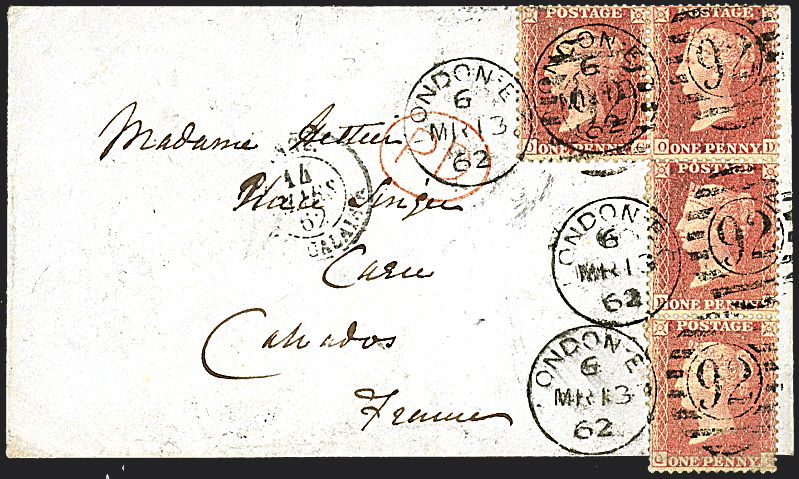 POSTAGE POSTAGE
ONE PENNY
O ONE PENNY D
92
POSTAGE
92
ONE PENNY
POSTAGE
92
ONE PENNY
LONDON·E
6
MR13
62
LONDON·E
6
62
LONDON·E
6
MR13
62
LONDON·E
6
MR13
62
PD
14
MARS
62
CALAIS
Madame
Place Singer
Caen
Calvados
France